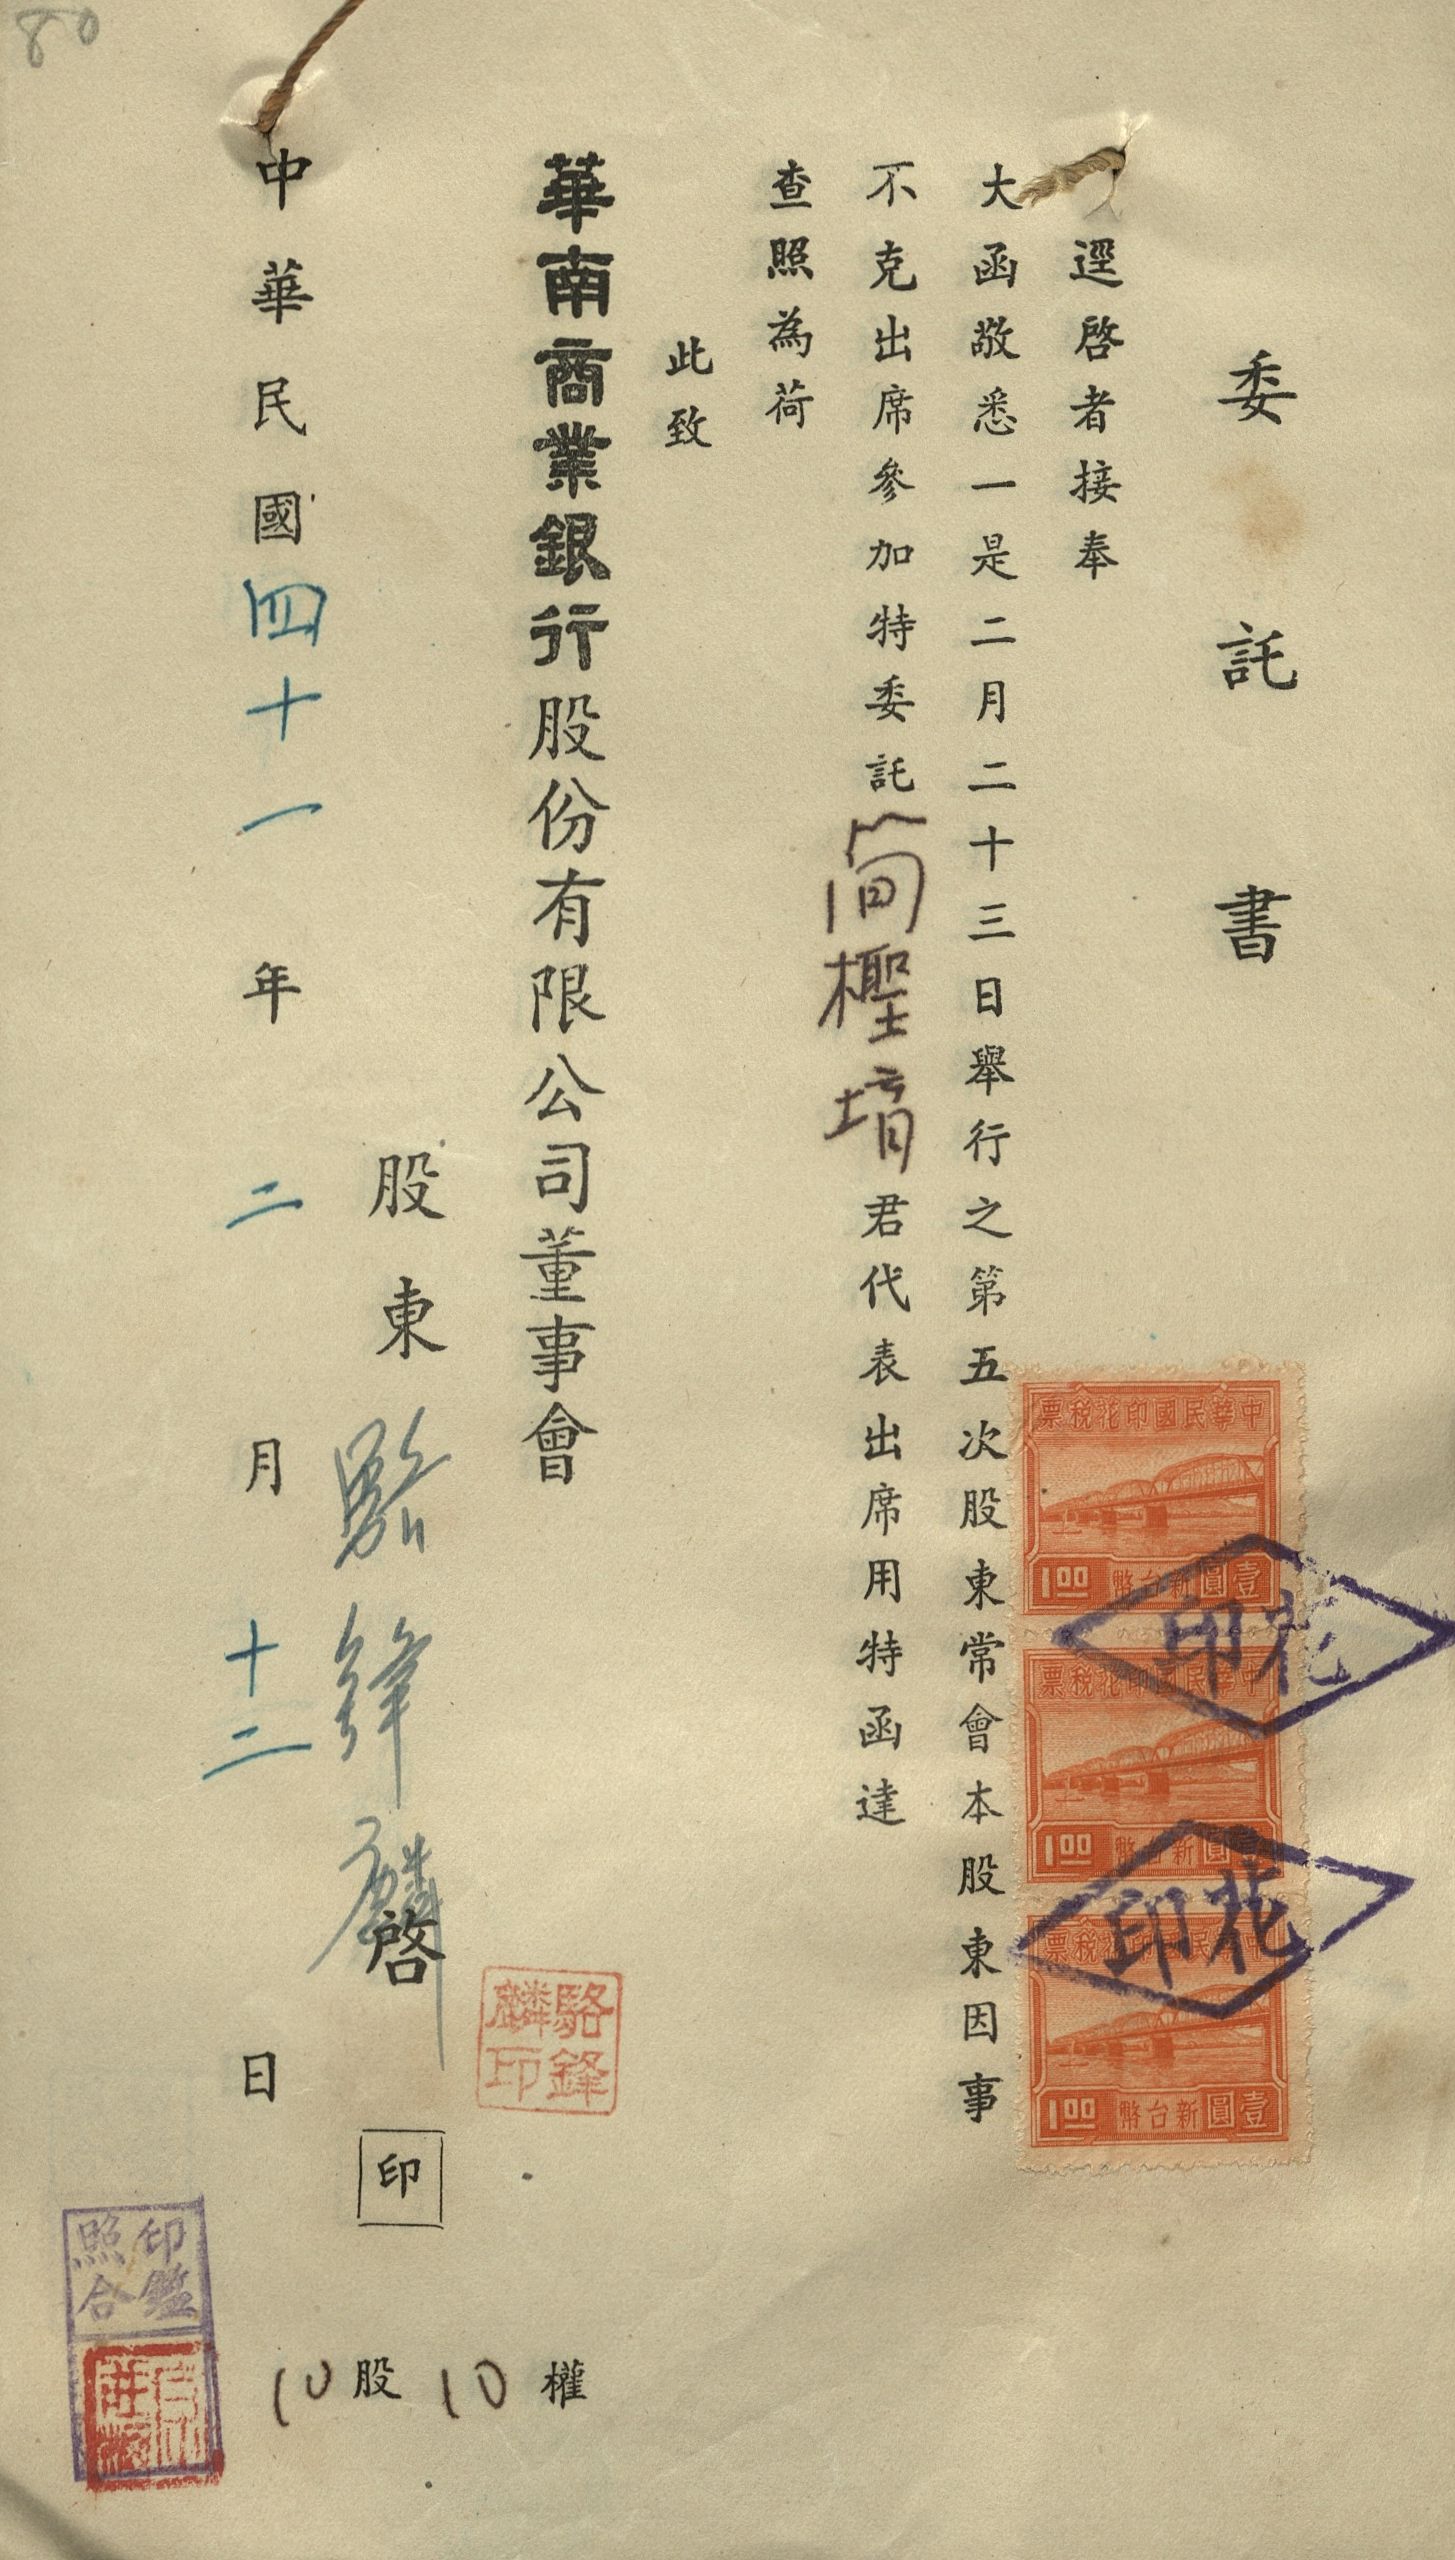 80
委託書
逕啓者接奉
大函敬悉一是二月二十三日舉行之第五次股東常會本股東因事
不克出席參加特委託簡檉堉君代表出席用特函達
查照為荷
此致
華南商業銀行股份有限公司董事會
股東駱鋒麟啓
印
駱鋒
麟印
中華民國四十一年二月十二日
10股10權
中華民國印花稅票
1.00
壹圓新台幣
中華民國印花稅票
1.00
壹圓新台幣
中華民國印花稅票
1.00
壹圓新台幣
花印
花印
印鑑
照合